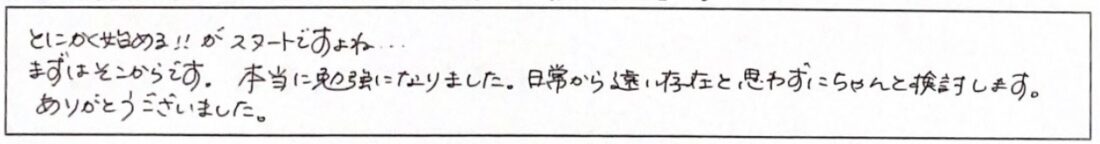 とにかく始める!! がスタートですよね…
まずはそこからです。本当に勉強になりました。日常から遠い存在と思わずにちゃんと検討します。
ありがとうございました。